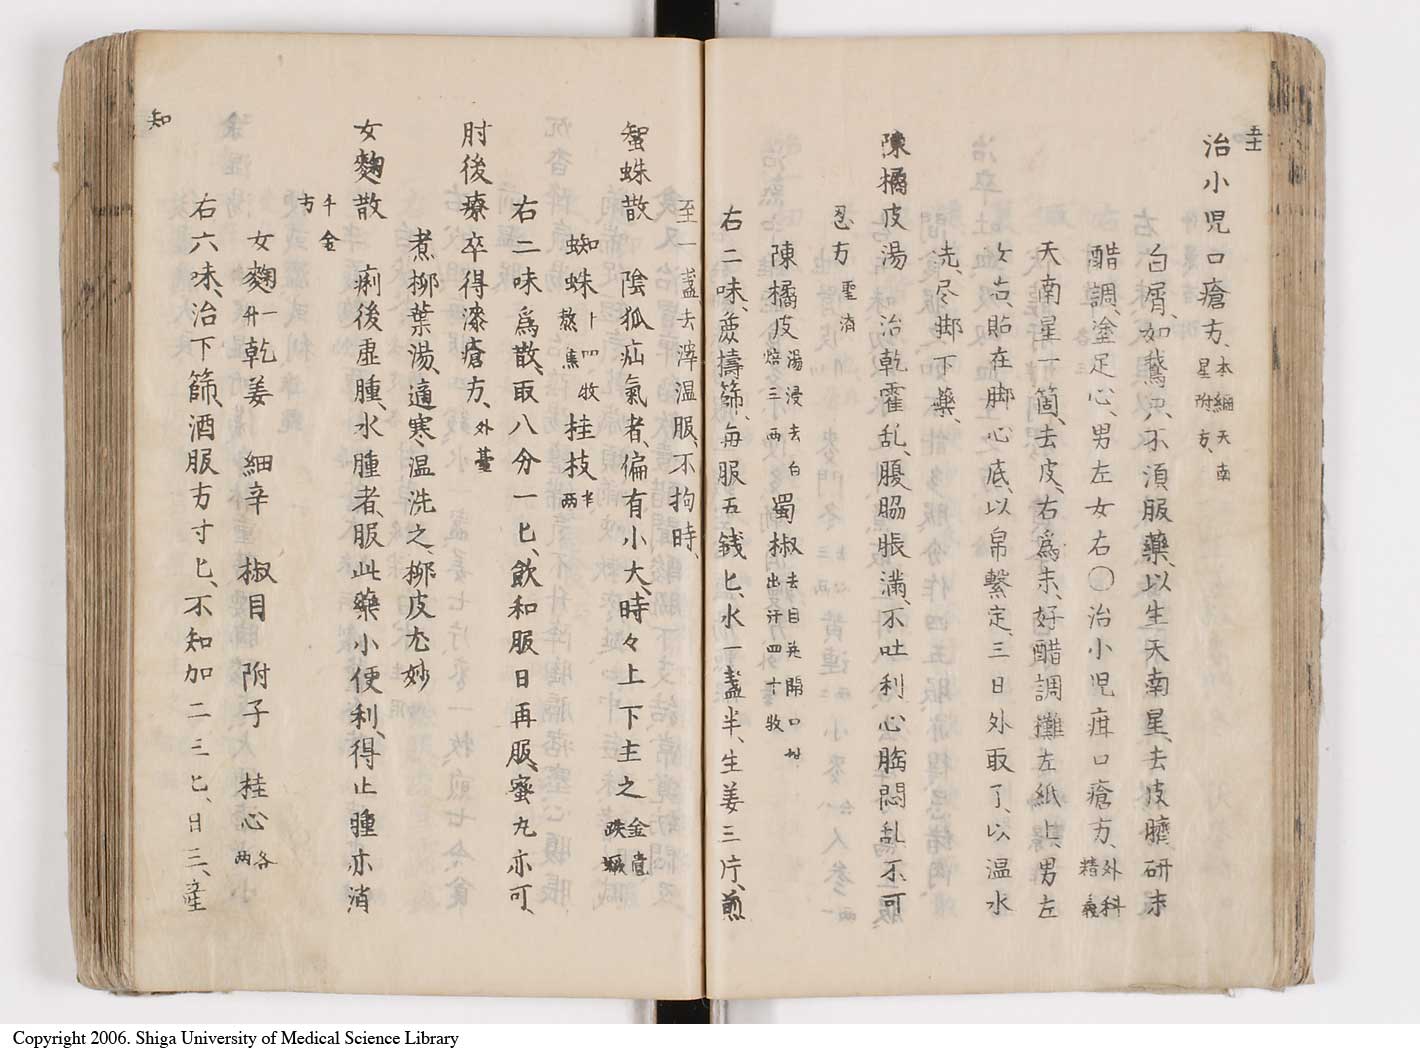 五十
治小児口瘡方、本綱天南星附方、
白屑、如鵞口、不須服藥、以生天南星、去皮臍、研末
醋調、塗足心、男左女右〇治小児疳口瘡方、外科精義
天南星一箇、去皮、右爲末、好醋調攤左紙上、男左
女右、貼在脚心底、以帛繋定、三日外取了、以温水
洗、尽脚下藥、
陳橘皮湯　治乾霍乱、腹脇脹満、不吐利心胸悶乱不可
忍方　聖済
陳橘皮湯浸去白焙三兩　蜀椒去目并閉口出汗四十枚
右二味、麁擣篩、毎服五銭匕、水一盞半、生姜三片、煎
至一盞、去滓温服、不拘時、
蜘蛛散　陰狐疝氣者、偏有小大、時々上下主之　金匱
蜘蛛十四枚熬焦　桂枝半兩
右二味爲散、取八分一匕、飲和服日再服、蜜丸亦可、
肘後療卒得漆瘡方、外臺
煮柳葉湯、適寒温洗之、柳皮尤妙
女麴散　痢後虚腫、水腫者、服此藥小便利、得止腫亦消
千金方
女麴一升　乾姜　細辛　椒目　附子　桂心各兩
右六味、治下篩、酒服方寸匕、不知加二三匕、日三、産
知
Copyright 2006. Shiga University of Medical Science Library